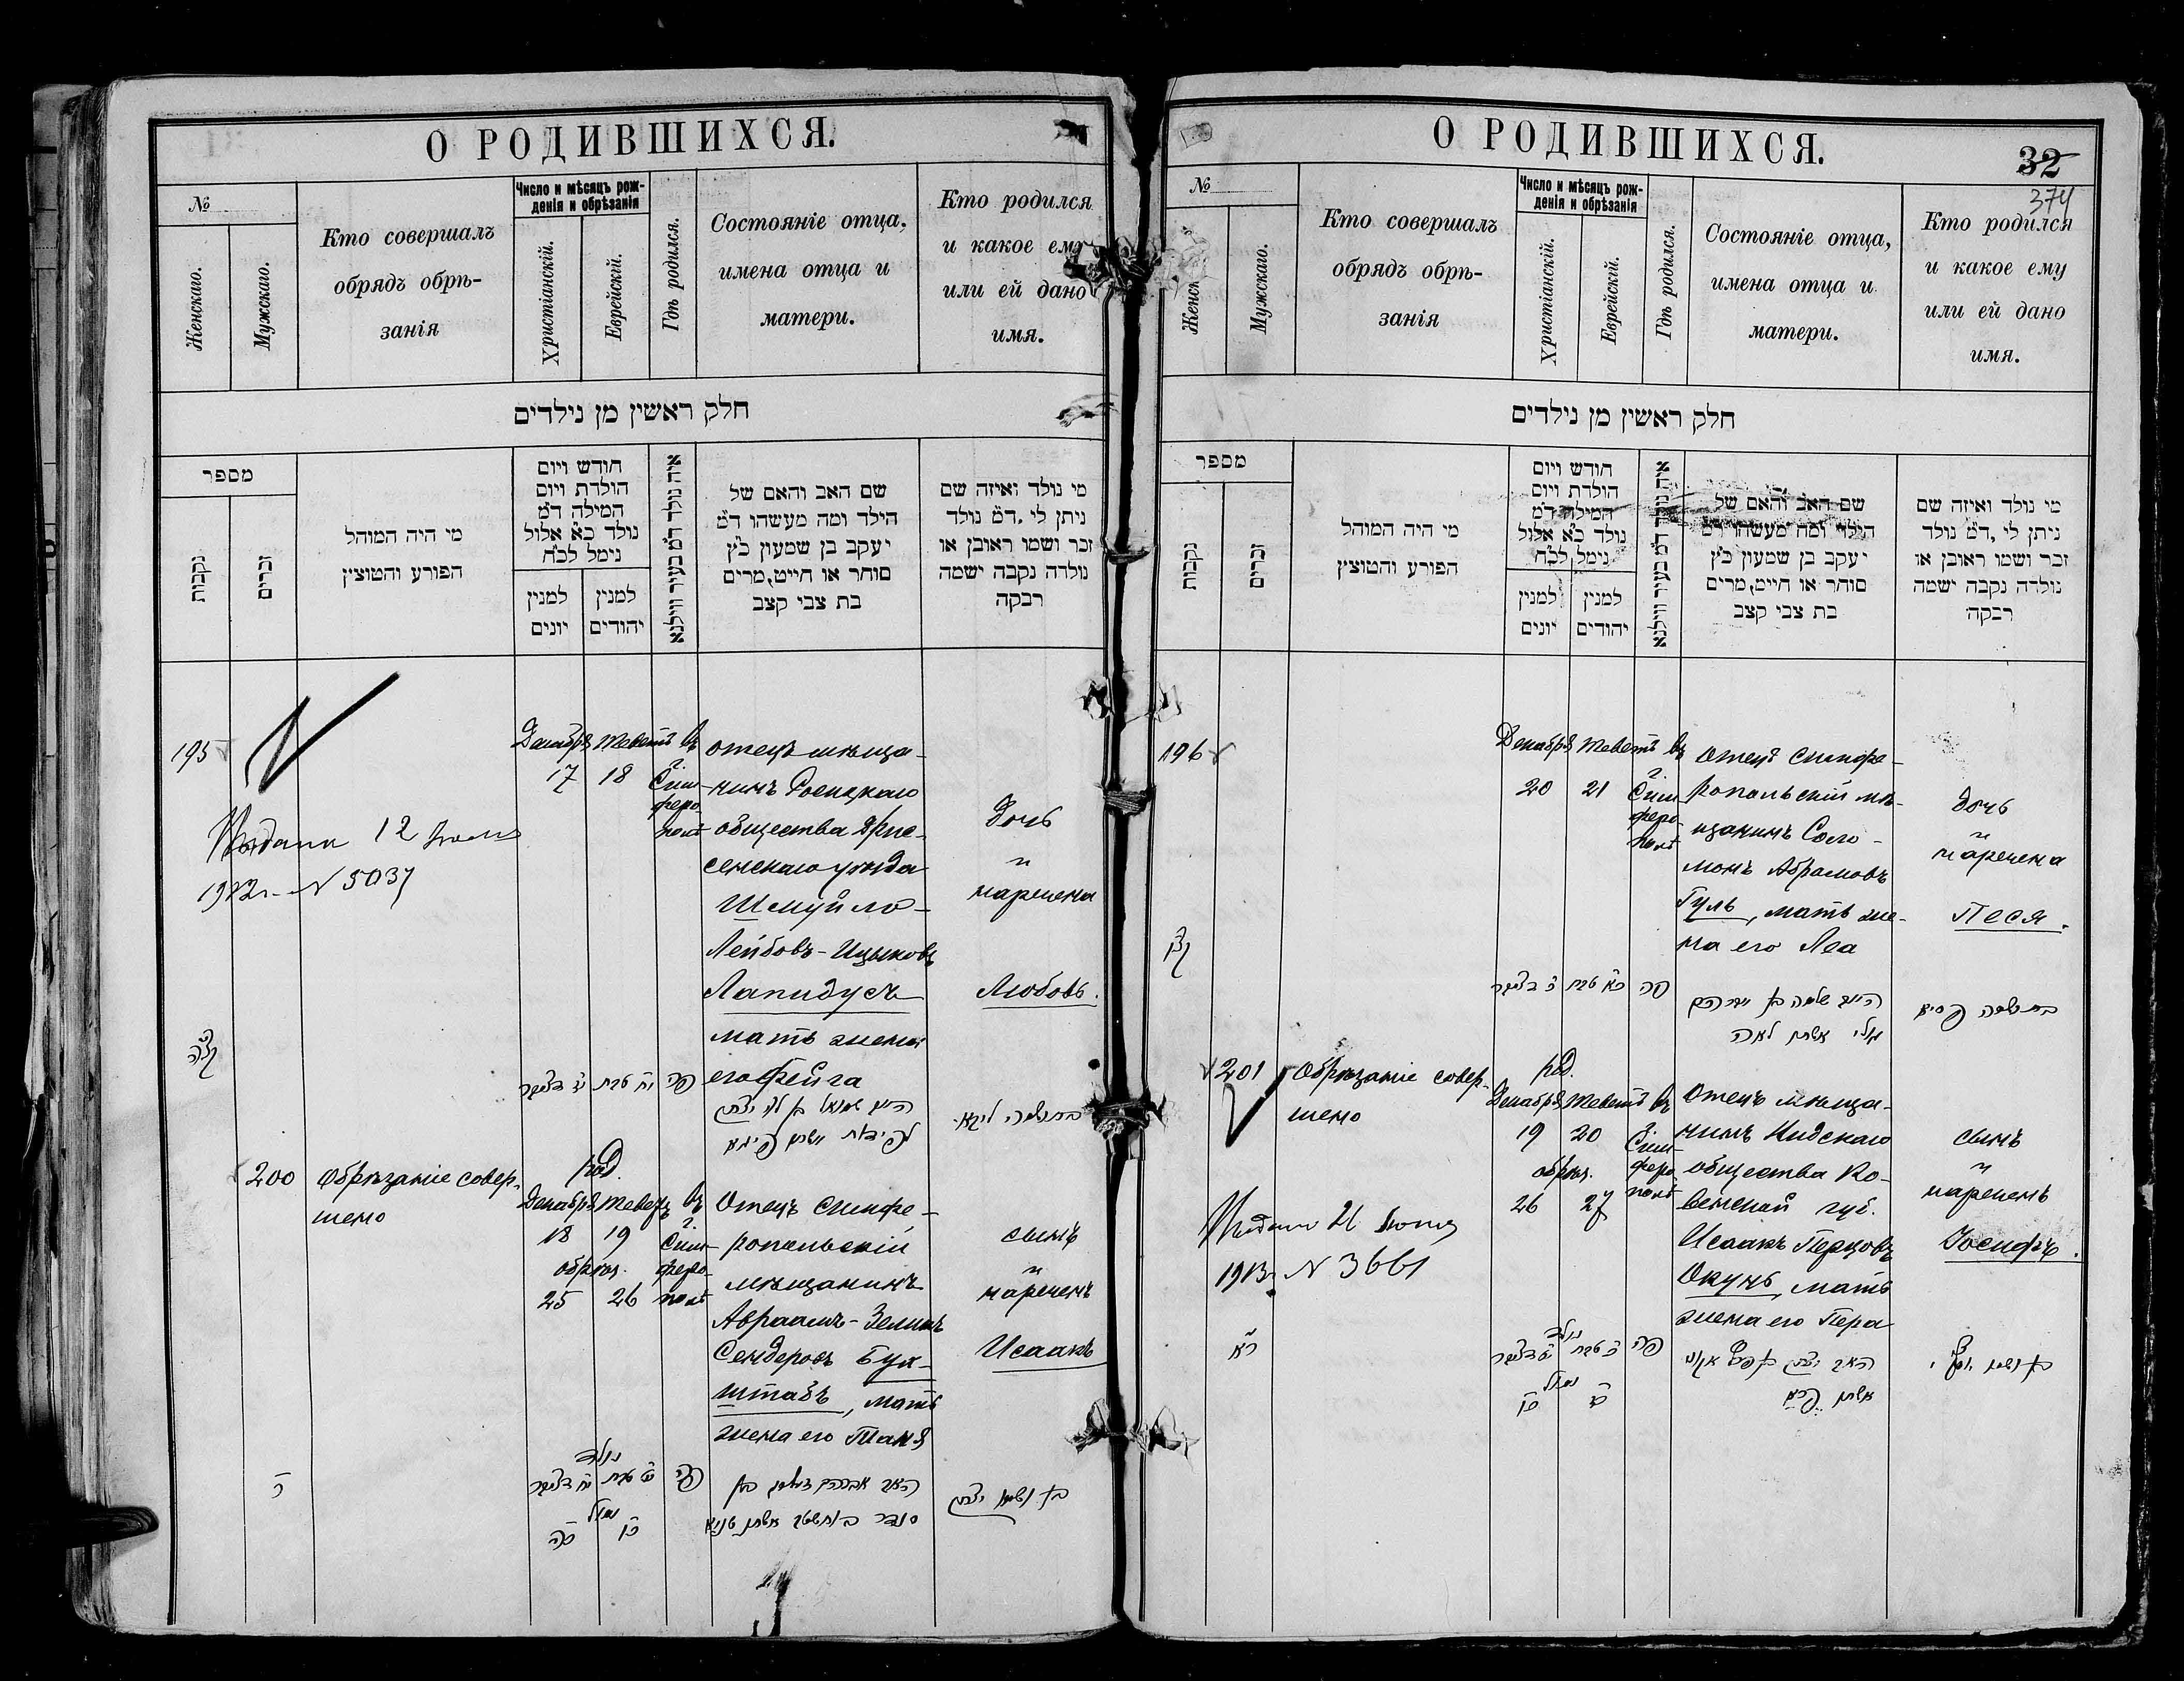 О РОДИВШИХСЯ.
№
Женскаго.
Мужскаго.
Кто совершалъ
обрядъ обрѣ-
занія
Число и мѣсяцъ рож-
денія и обрѣзанія
Христіанскій.
Еврейскій.
Гдѣ родился.
Состояніе отца,
имена отца и
матери.
Кто родился
и какое ему
или ей дано
имя.
חלק ראשין מן נילדים
מספר
נקבות
זכרים
מי היה המוהל
הפורע והמוצץ
חודש ויום
הולדת ויום
המילה ד"מ
נולד כ"א אלול
נימל לכ"ח
למנין
יונים
למנין
יהודים
איה נולד ד"מ בעיר ווילנא
שם האב והאם של
הילד ומה מעשהו ד"מ
יעקב בן שמעון כ"ץ
סוחר או חייט, מרים
בת צבי קצב
מי נולד ואיזה שם
ניתן לי, ד"מ נולד
זכר ושמו ראובן או
נולדה נקבה ישמה
רבקה
195
Декабря Теветъ въ
17 18
г.
Сим-
феро-
полѣ
отецъ мѣща-
нинъ Росицкаго
общества Дри-
сенскаго уѣзда
Шмуйло-
Лейбовъ-Ицыковъ
Лапидусъ
мать жена
его Фейга
Дочь
и
наречена
Любовь.
Выдана 12 Іюля
1912г. N 5037
קצ"ה
י"ז דצמבר
י"ח טבת
פה
200
Обрѣзаніе совер-
шено
род.
Декабря Теветъ въ
18 19
обрѣз.
25 26
г.
Сим-
феро-
полѣ
Отецъ Симфе-
ропольскій
мѣщанинъ
Авраамъ-Зелигъ
Сендеровъ Бух-
штабъ, мать
жена его Таня
сынъ
и
нареченъ
Исаакъ
ר
נולד
י"ח דצמבר
י"ט טבת
פה
נימול
כ"ה
כ"ו
בן ושמו יצחק
О РОДИВШИХСЯ.
32
374
№
Женск
Мужскаго.
Кто совершалъ
обрядъ обрѣ-
занія
Число и мѣсяцъ рож-
денія и обрѣзанія
Христіанскій.
Еврейскій.
Гдѣ родился.
Состояніе отца,
имена отца и
матери.
Кто родился
и какое ему
или ей дано
имя.
חלק ראשין מן נילדים
מספר
נקבות
זכרים
מי היה המוהל
הפורע והמוצץ
חודש ויום
הולדת ויום
המילה ד"מ
נולד כ"א אלול
נימל לכ"ח
למנין
יונים
למנין
יהודים
איה נולד ד"מ בעיר ווילנא
שם האב והאם של
הילד ומה מעשהו ד"מ
יעקב בן שמעון כ"ץ
סוחר או חייט, מרים
בת צבי קצב
מי נולד ואיזה שם
ניתן לי, ד"מ נולד
זכר ושמו ראובן או
נולדה נקבה ישמה
רבקה
196
Декабря Теветъ въ
20 21
г.
Сим-
феро-
полѣ
Отецъ Симфе-
ропольскій мѣ-
щанинъ Соло-
монъ Абрамовъ
Гуль, мать же-
на его Леа
дочь
и
наречена
Песя.
קצ"ו
כ' דצמבר
כ"א טבת
פה
201
Обрѣзаніе совер-
шено
род.
Декабря Теветъ въ
19 20
обрѣз.
26 27
г.
Сим-
феро-
полѣ
Отецъ мѣща-
нинъ Видскаго
общества Ко-
венской губ.
Исаакъ Перцовъ
Окунь, мать
жена его Пера
сынъ
и
нареченъ
Іосифъ.
Выдано 21 Іюня
1913г. N 3661
ר"א
נולד
י"ט דצמבר
כ' טבת
פה
נימול
כ"ו
כ"ז
אשתו פרא